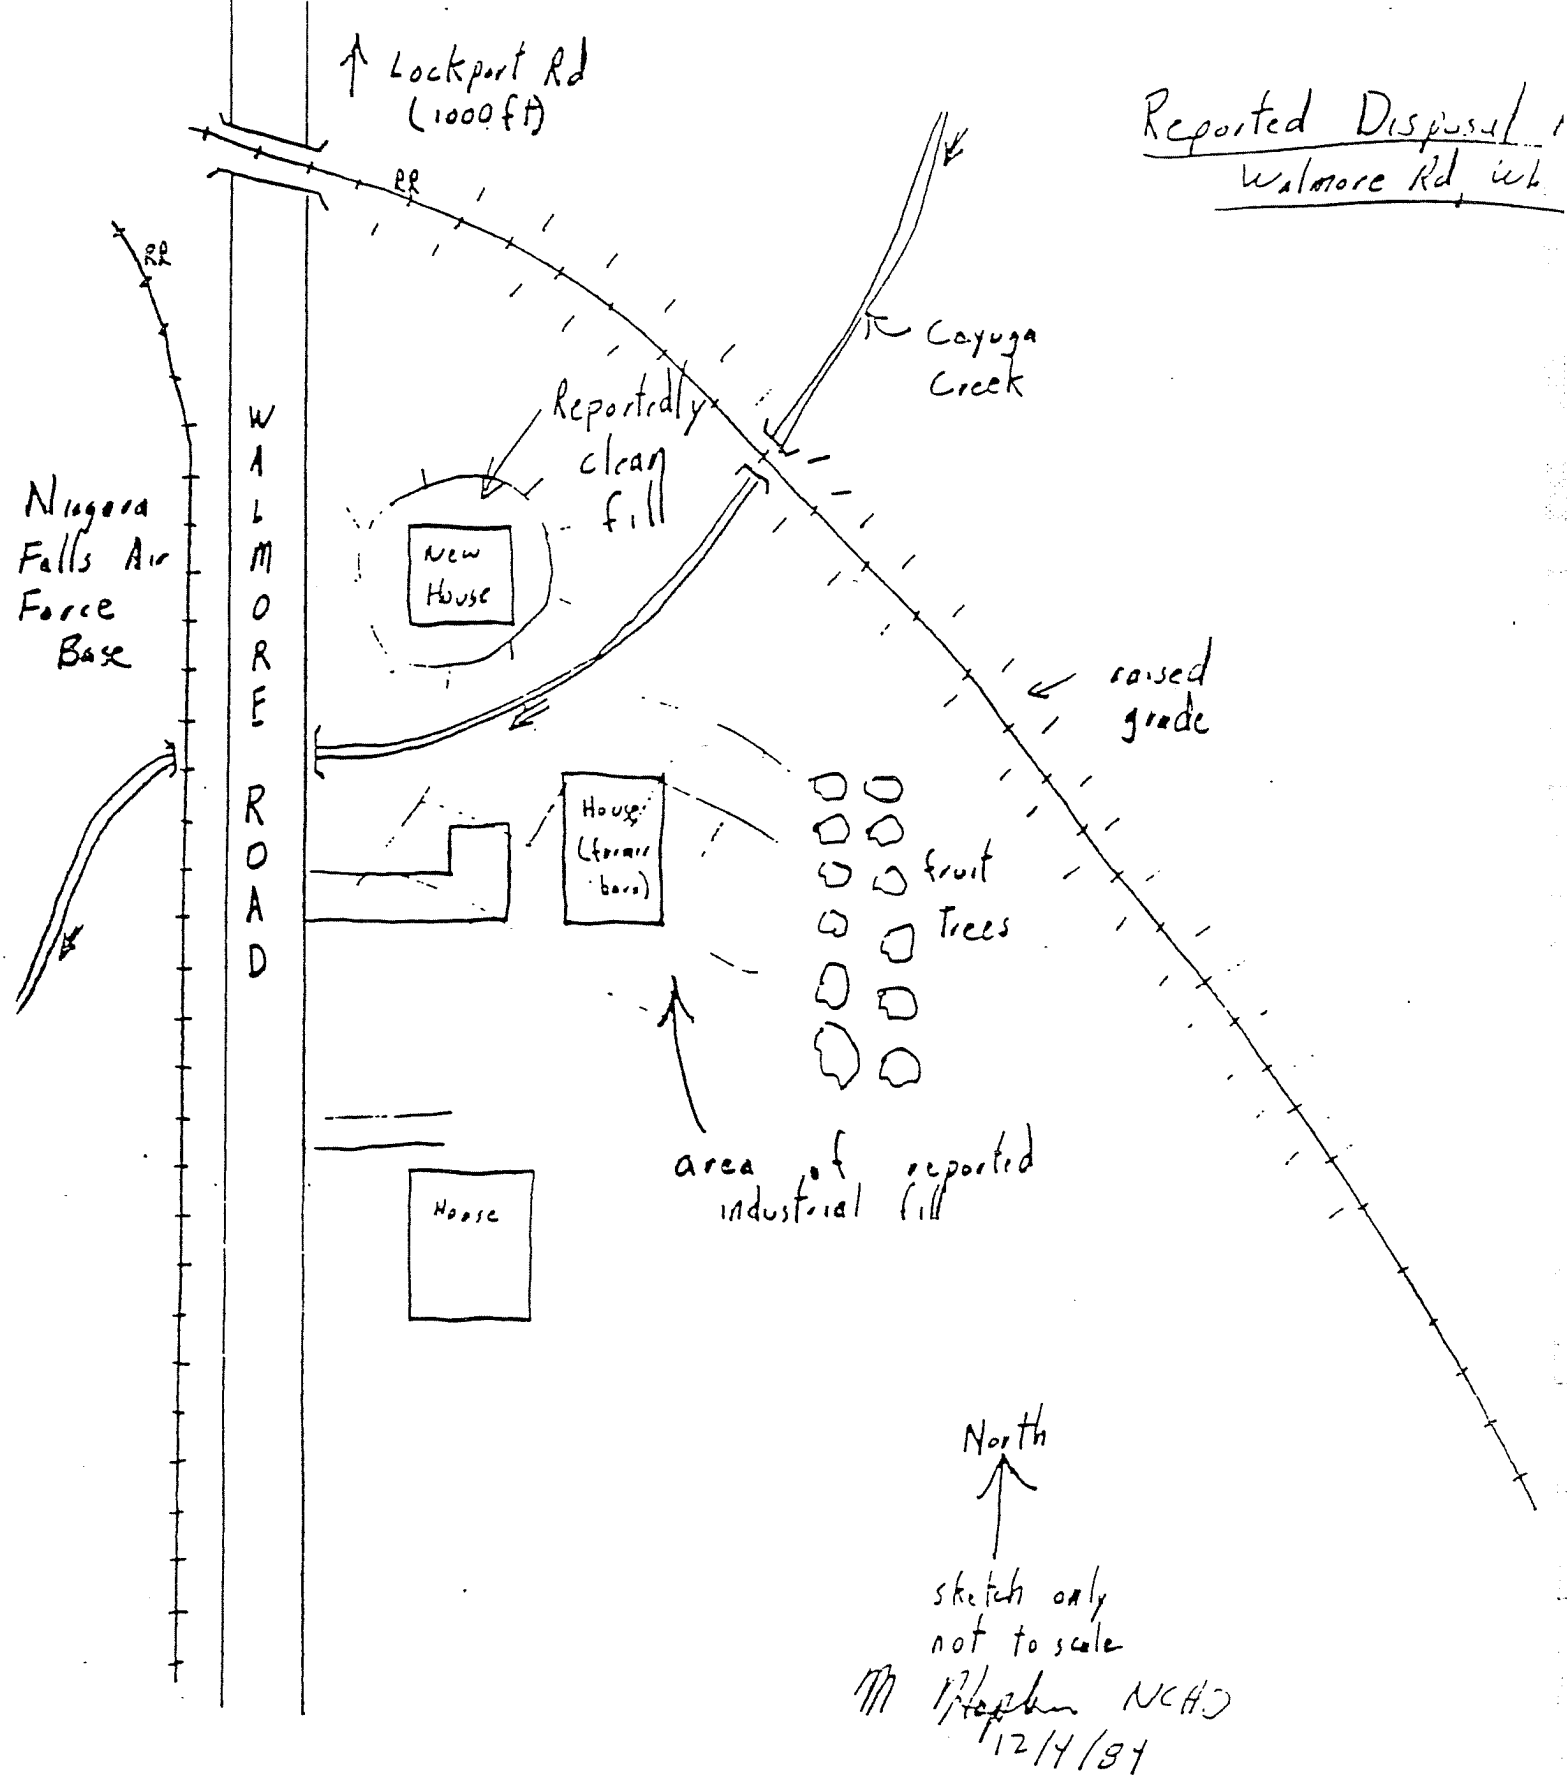 Lockport Rd
(1000 ft)
Reported Disposal
Walmore Rd, Wh
RR
RR
Cayuga
Creek
Reportedly
clean
fill
WALMORE ROAD
Niagara
Falls Air
Force
Base
New
House
raised
grade
House
(former
barn)
fruit
Trees
area of reported
industrial fill
House
North
sketch only
not to scale
M Hopkins NCHD
12/4/84